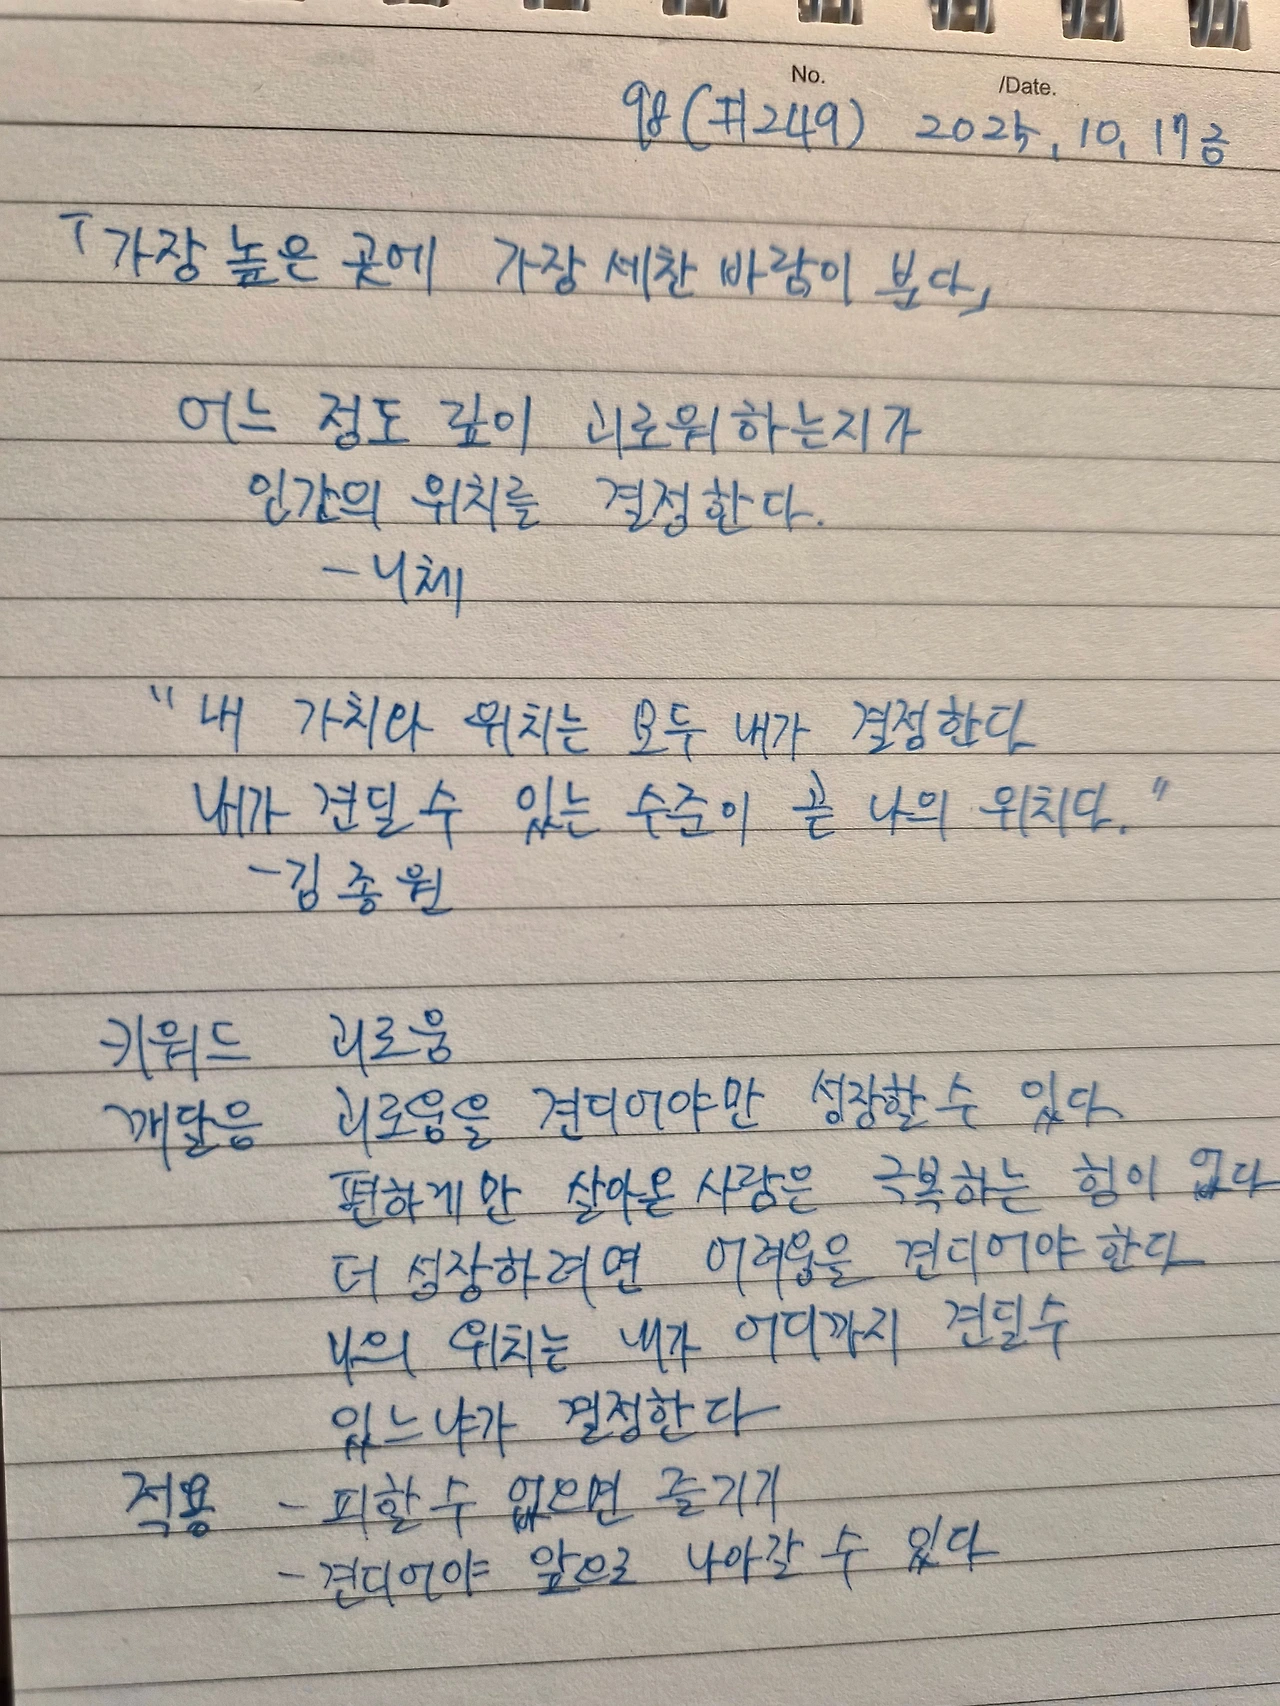 No. /Date.
98(#249) 2025. 10. 17 금
「가장 높은 곳에 가장 세찬 바람이 분다」
어느 정도 깊이 괴로워하는지가
인간의 위치를 결정한다.
- 니체
"내 가치와 위치는 모두 내가 결정한다
내가 견딜 수 있는 수준이 곧 나의 위치다."
- 김종원
키워드 괴로움
깨달음 괴로움을 견디어야만 성장할 수 있다
편하게만 살아온 사람은 극복하는 힘이 없다
더 성장하려면 어려움을 견디어야 한다
나의 위치는 내가 어디까지 견딜 수
있느냐가 결정한다
적용 - 피할 수 없으면 즐기기
- 견디어야 앞으로 나아갈 수 있다